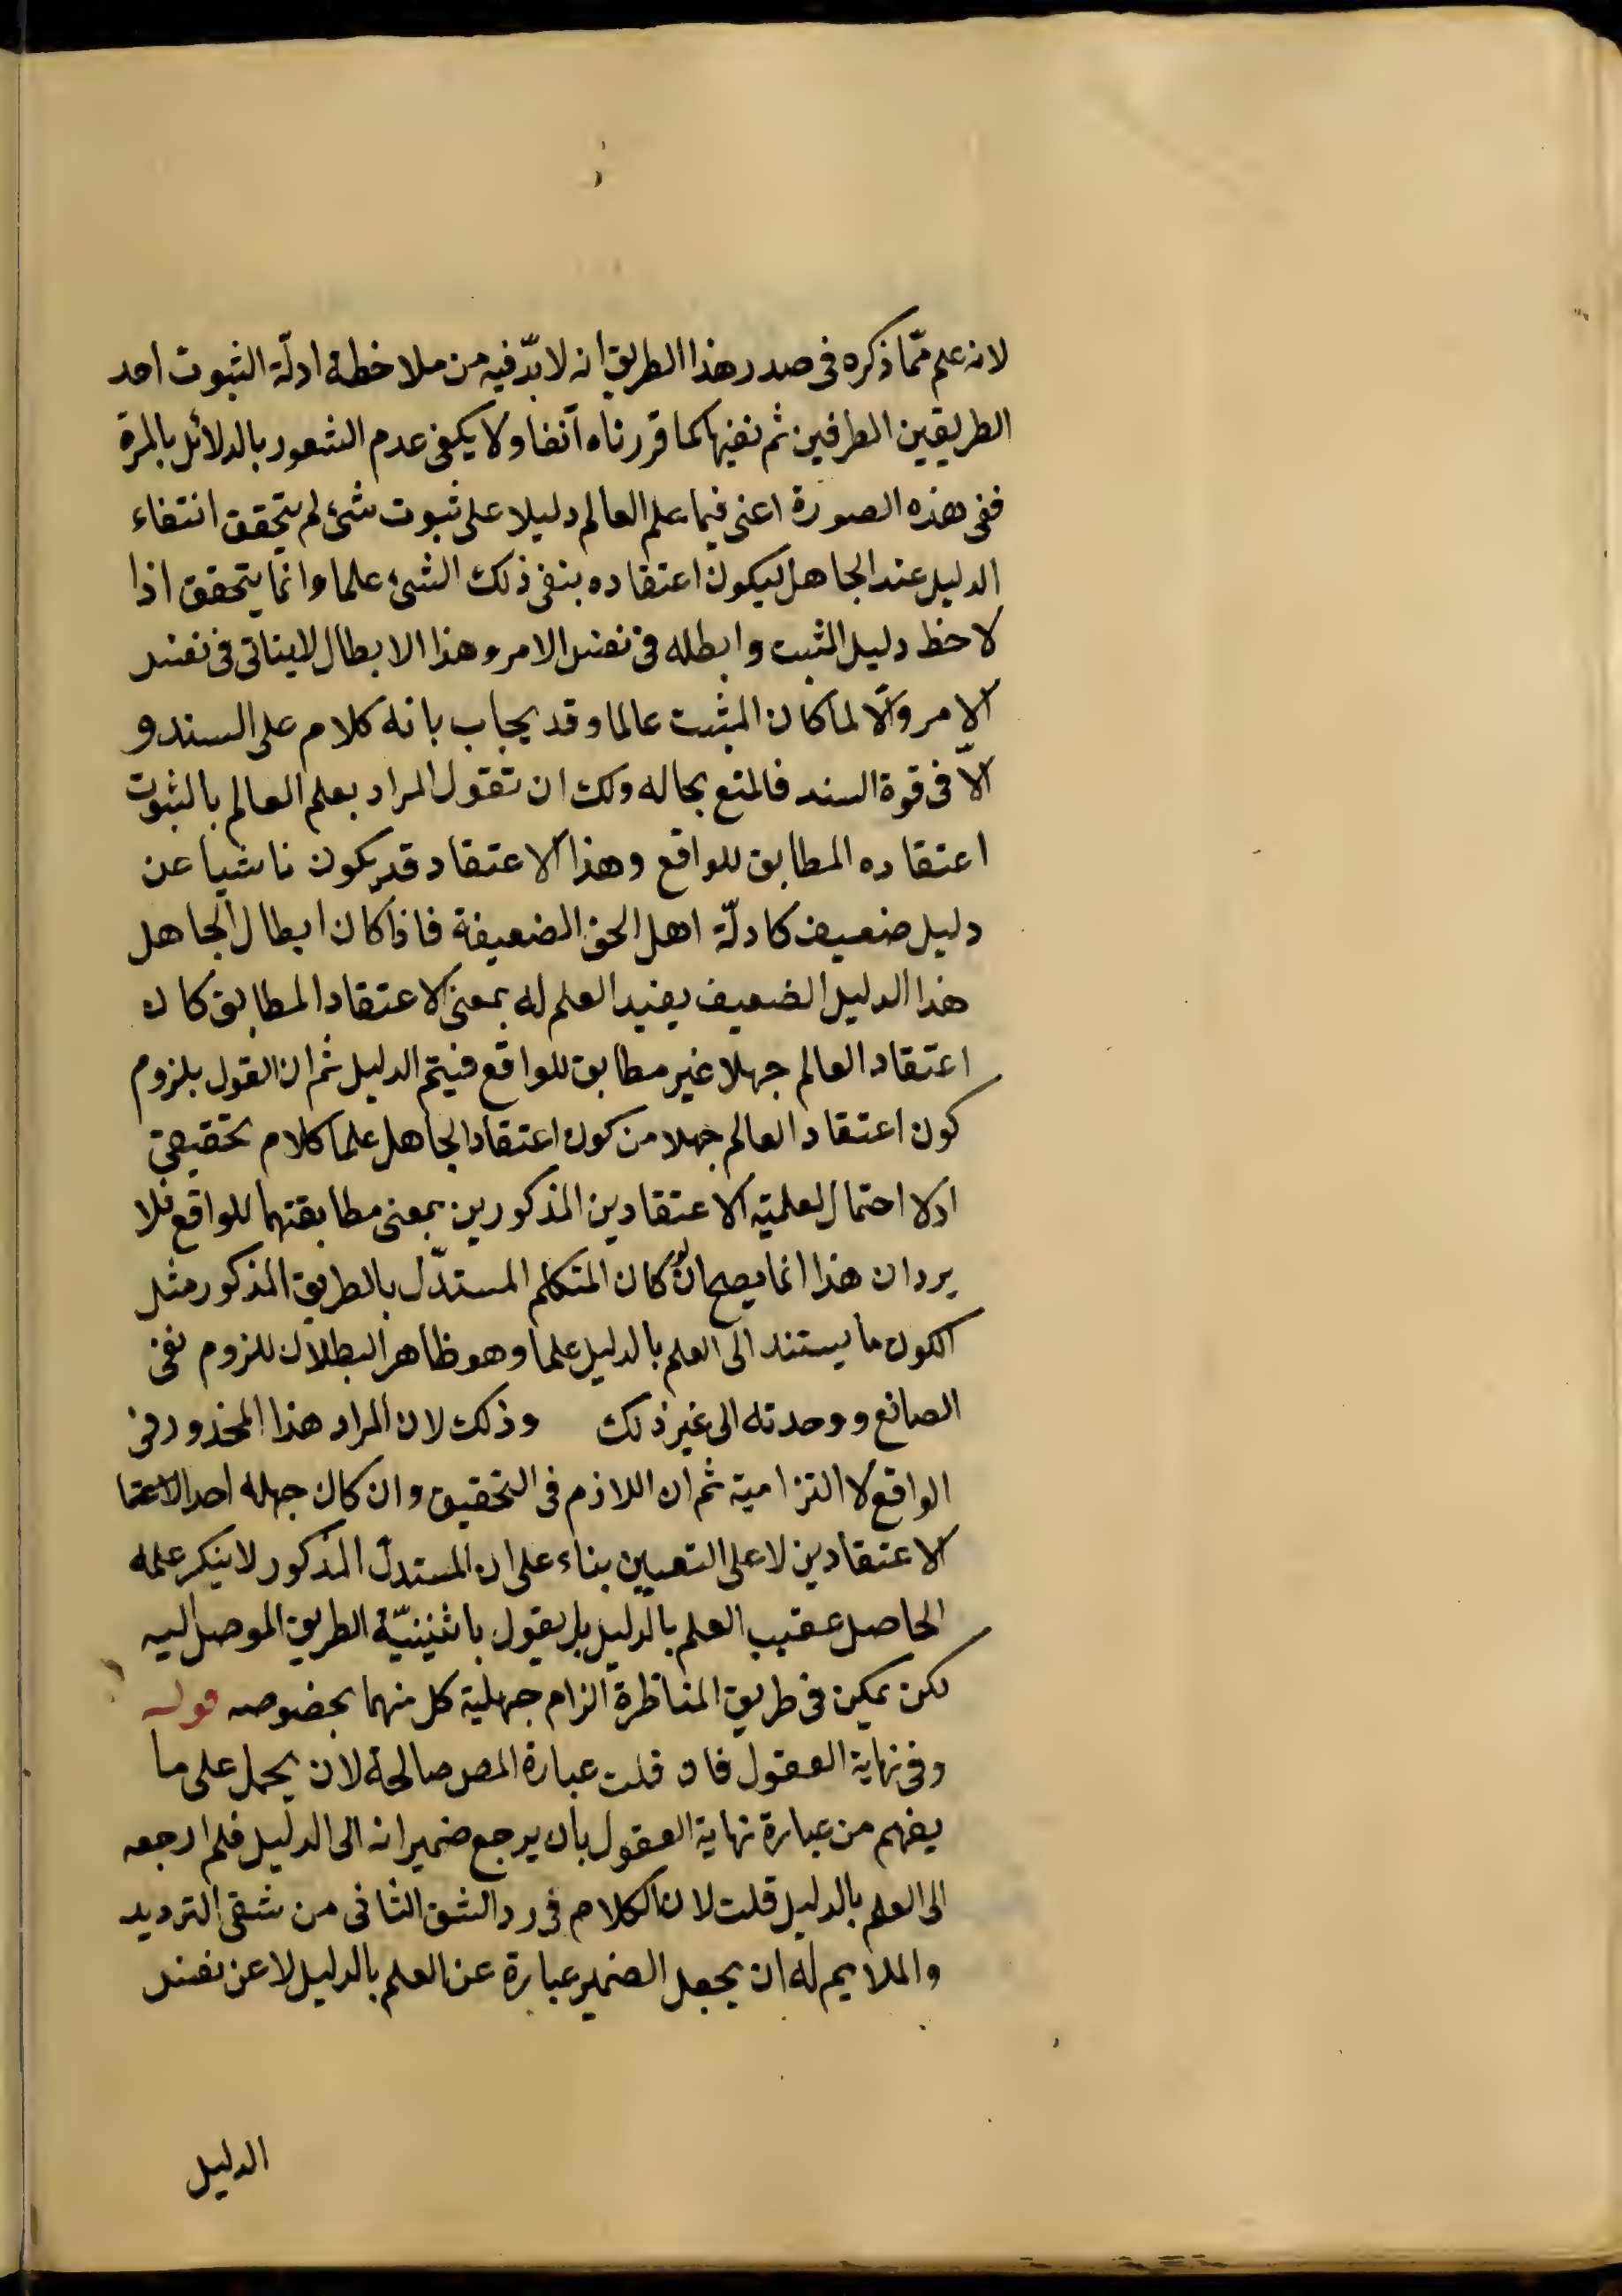 لانه علم مما ذكره فى صدر هذا الطريق انه لا بدّ فيه من ملاحظة ادلّة الثبوت احد
الطريقين الطرفين ثم نفيها كما قررناه آنفا ولا يكفى عدم الشعور بالدلائل بالمرة
ففى هذه الصورة اعنى فيما علم العالم دليلا على ثبوت شئ لم يتحقق انتفاء
الدليل عند الجاهل ليكون اعتقاده بنفى ذلك الشئ علما وانما يتحقق اذا
لاحظ دليل المثبت وابطله فى نفس الامر وهذا الابطال لا يتاتى فى نفس
الامر والّا لما كان المثبت عالما وقد يجاب بانه كلام على السند و
الّا فى قوة السند فالمنع بحاله ولك ان تقول المراد بعلم العالم بالثبوت
اعتقاده المطابق للواقع وهذا الاعتقاد قد يكون ناشيا عن
دليل ضعيف كادلّة اهل الحق الضعيفة فاذا كان ابطال الجاهل
هذا الدليل الضعيف يفيد العلم له بمعنى الاعتقاد المطابق كان
اعتقاد العالم جهلا غير مطابق للواقع فيتم الدليل ثم ان القول بلزوم
كون اعتقاد العالم جهلا من كون اعتقاد الجاهل علما كلام تحقيقى
اذ لا احتمال لعلمية الاعتقادين المذكورين بمعنى مطابقتهما للواقع فلا
يرد ان هذا انما يصح ان لو كان المتكلم المستدّل بالطريق المذكور مثل
الكون ما يستند الى العلم بالدليل علما وهو ظاهر البطلان للزوم نفى
الصانع ووحدته الى غير ذلك وذلك لان المراد هذا المحذور فى
الواقع لا التزامية ثم ان اللازم فى التحقيق وان كان جهله احد الاعتقا
الاعتقادين لا على التعيين بناء على ان المستدل المذكور لا ينكر علمه
الحاصل عقيب العلم بالدليل بل يقول باثنينيّة الطريق الموصل اليه
لكن يمكن فى طريق المناظرة الزام جهلية كل منهما بخصوصه قوله
وفى نهاية العقول فان قلت عبارة المص صالحة لان يحمل على ما
يفهم من عبارة نهاية العقول بان يرجع ضمير انه الى الدليل فلم ارجعه
الى العلم بالدليل قلت لان الكلام فى رد الشق الثانى من شقى الترديد
والملايم له ان يجعل الضمير عبارة عن العلم بالدليل لا عن نفس
الدليل